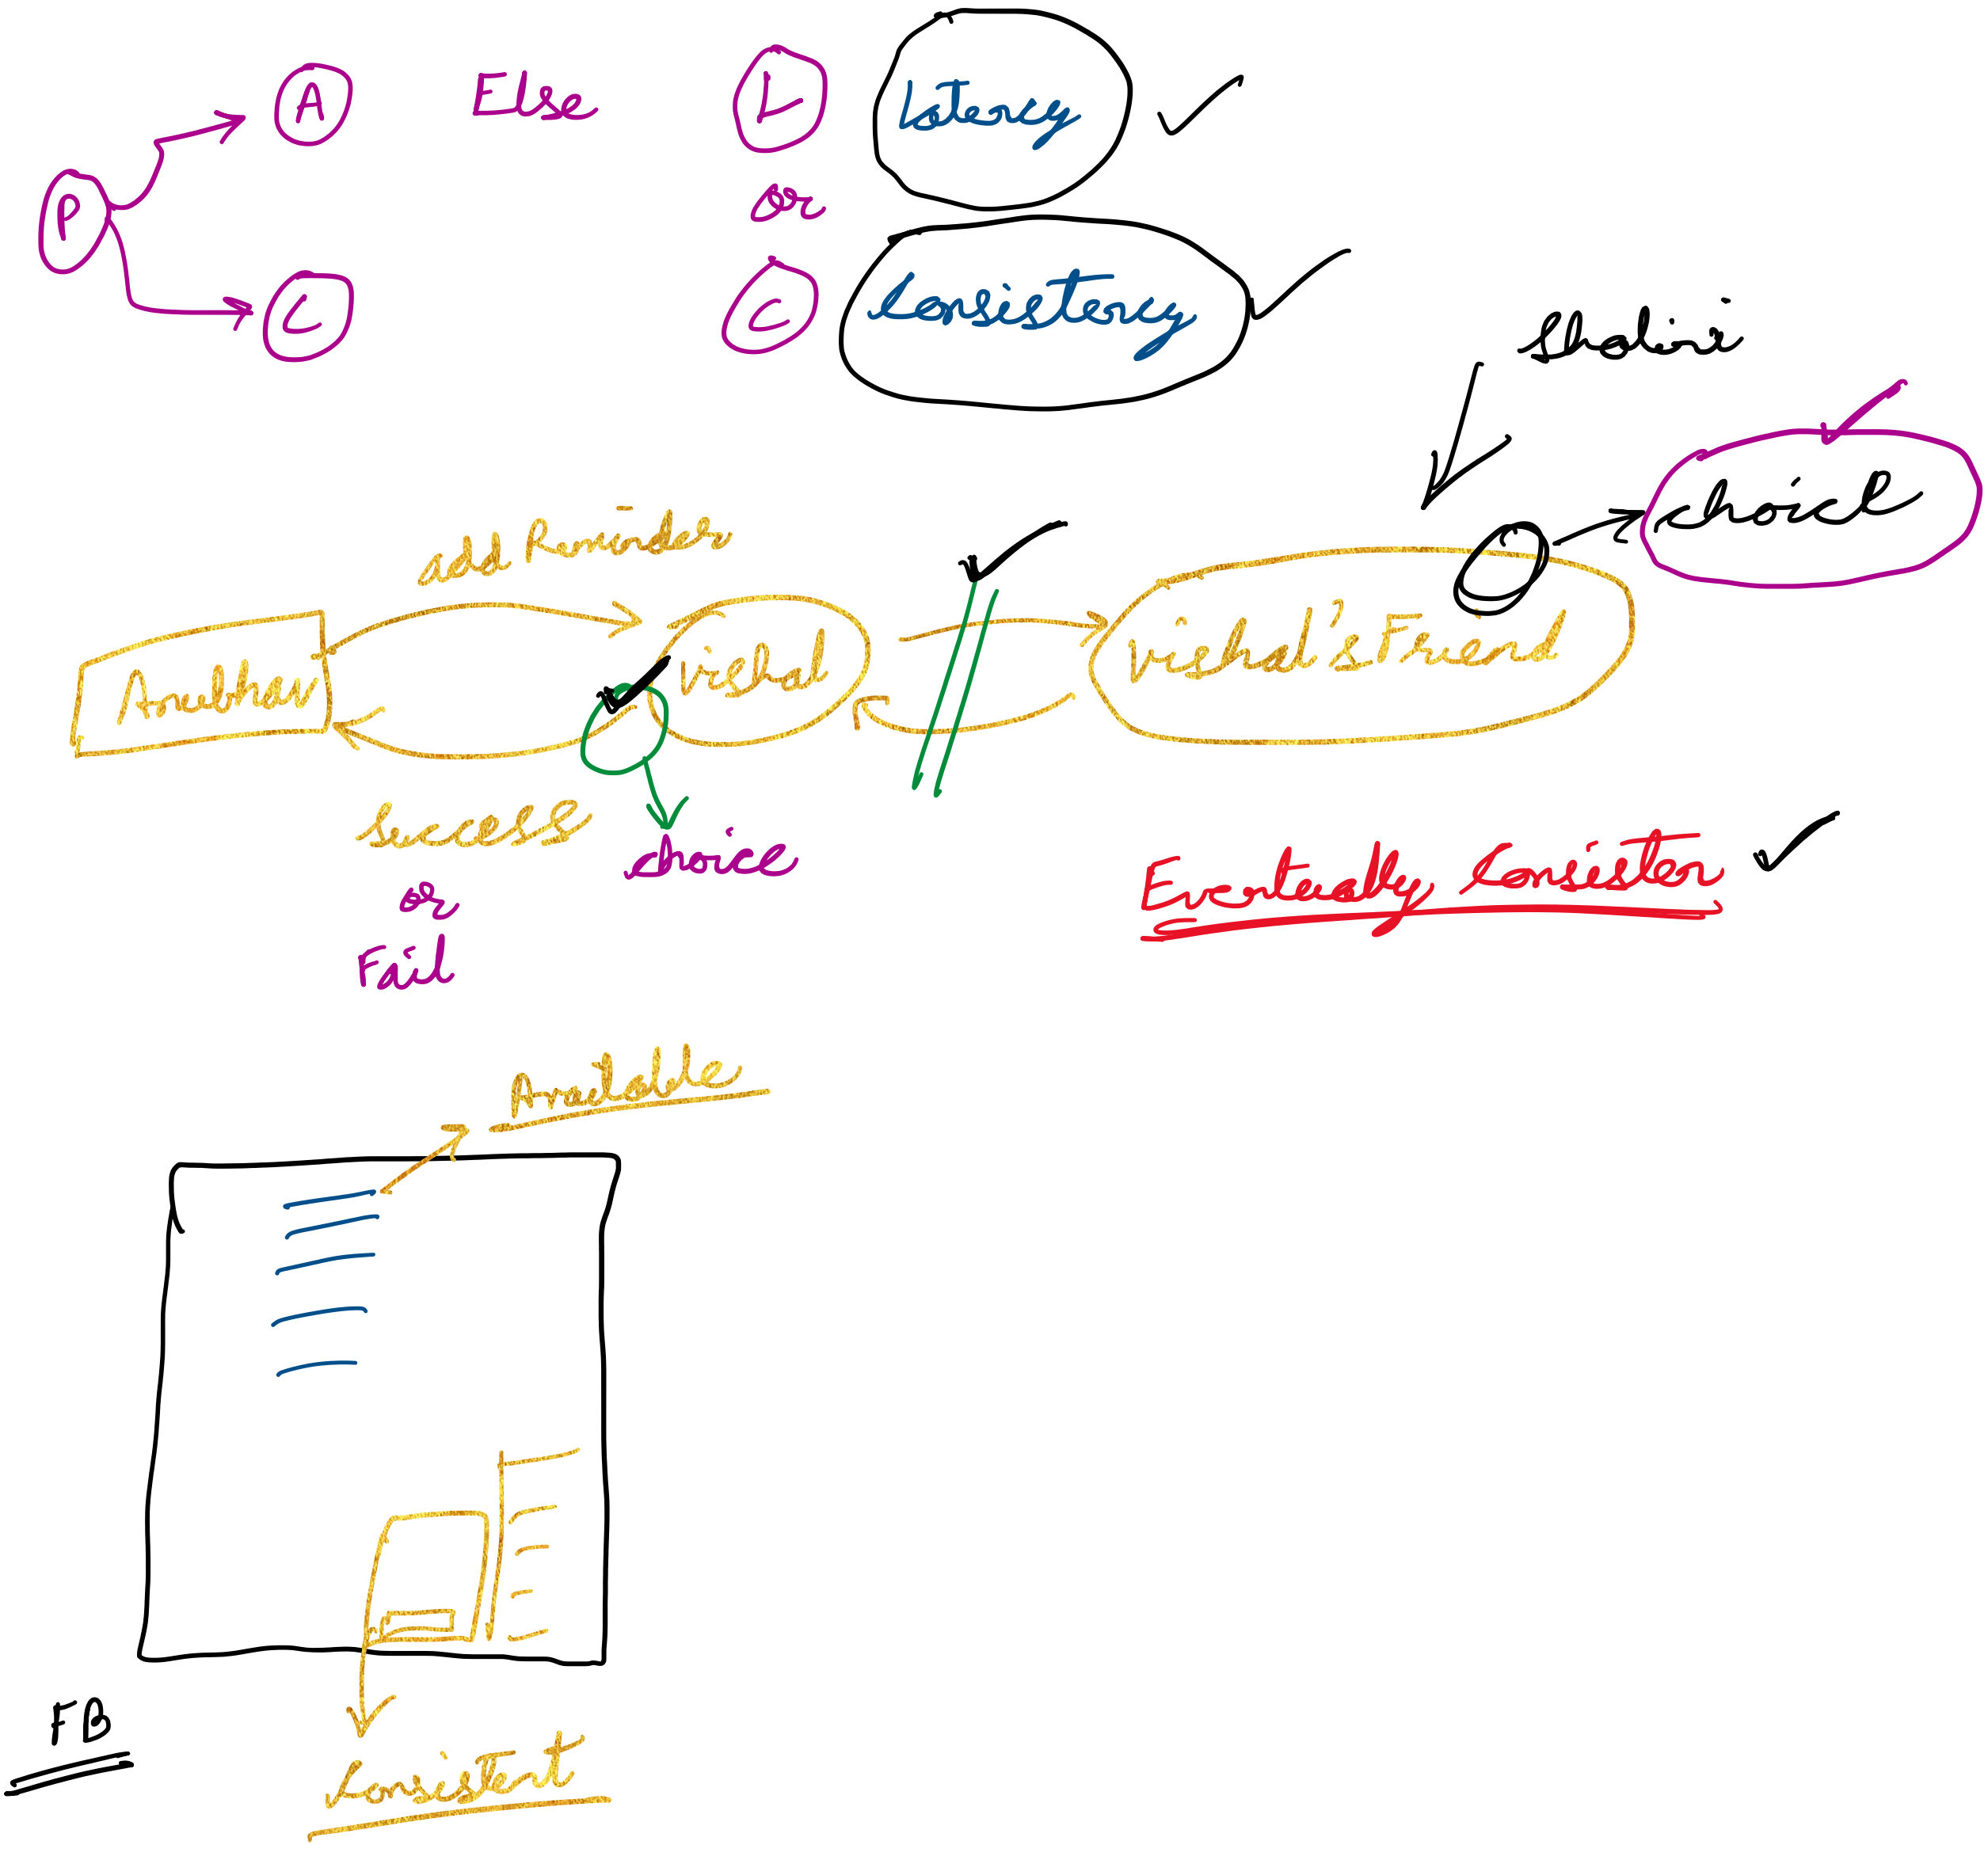 A Else L Latency
P or
C C Consistency
Shalini
choice
add Reminder
Anubhav Vishal Vishal's Friend
Success
choice
or
Fail
Eventually Consistent
Available
FB
Consistent